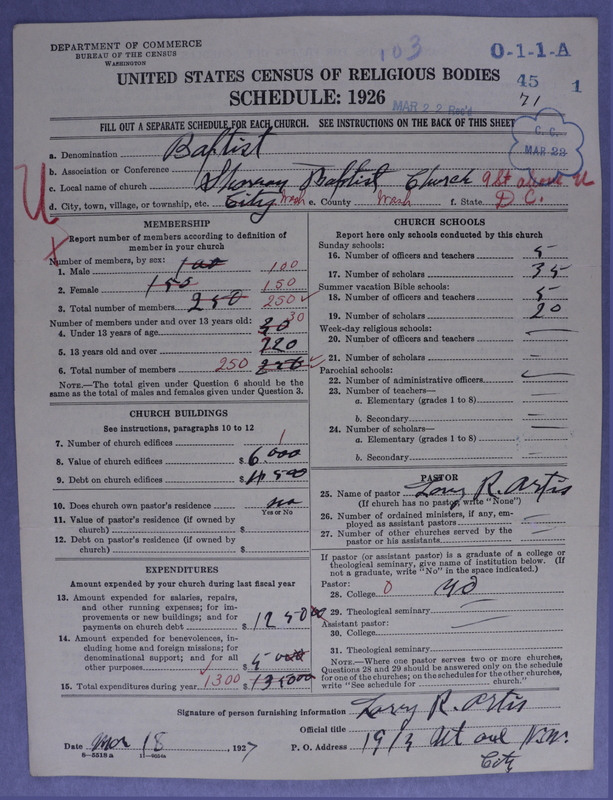 DEPARTMENT OF COMMERCE
BUREAU OF THE CENSUS
WASHINGTON
103
0-1-1-A
UNITED STATES CENSUS OF RELIGIOUS BODIES
45 1
SCHEDULE: 1926
MAR 22 Rec'd
71
FILL OUT A SEPARATE SCHEDULE FOR EACH CHURCH. SEE INSTRUCTIONS ON THE BACK OF THIS SHEET
C. C.
MAR 22
a. Denomination Baptist
b. Association or Conference
c. Local name of church Baptist Church 9 St above U
d. City, town, village, or township, etc. City Wash e. County Wash f. State D.C.
U
X
MEMBERSHIP
Report number of members according to definition of member in your church
Number of members, by sex:
1. Male 100 100
2. Female 150 150
3. Total number of members 250 250
Number of members under and over 13 years old:
4. Under 13 years of age 30
5. 13 years old and over 220
6. Total number of members 250 250
NOTE.—The total given under Question 6 should be the
same as the total of males and females given under Question 3.
CHURCH BUILDINGS
See instructions, paragraphs 10 to 12
7. Number of church edifices 1
8. Value of church edifices $ 6,000
9. Debt on church edifices $ 4500
10. Does church own pastor's residence no
Yes or No
11. Value of pastor's residence (if owned by
church) $
12. Debt on pastor's residence (if owned by
church) $
EXPENDITURES
Amount expended by your church during last fiscal year
13. Amount expended for salaries, repairs,
and other running expenses; for im-
provements or new buildings; and for
payments on church debt $ 1250 00
14. Amount expended for benevolences, in-
cluding home and foreign missions; for
denominational support; and for all
other purposes $
15. Total expenditures during year 1300 $
CHURCH SCHOOLS
Report here only schools conducted by this church
Sunday schools:
16. Number of officers and teachers 5
17. Number of scholars 35
Summer vacation Bible schools:
18. Number of officers and teachers 5
19. Number of scholars 20
Week-day religious schools:
20. Number of officers and teachers
21. Number of scholars
Parochial schools:
22. Number of administrative officers
23. Number of teachers—
a. Elementary (grades 1 to 8)
b. Secondary
24. Number of scholars—
a. Elementary (grades 1 to 8)
b. Secondary
PASTOR
25. Name of pastor R. Artis
(If church has no pastor, write "None")
26. Number of ordained ministers, if any, em-
ployed as assistant pastors
27. Number of other churches served by the
pastor or his assistants
If pastor (or assistant pastor) is a graduate of a college or
theological seminary, give name of institution below. (If
not a graduate, write "No" in the space indicated.)
Pastor:
28. College 0 no
29. Theological seminary
Assistant pastor:
30. College
31. Theological seminary
NOTE.—Where one pastor serves two or more churches,
Questions 28 and 29 should be answered only on the schedule
for one of the churches; on the schedules for the other churches,
write "See schedule for church."
Signature of person furnishing information R. Artis
Official title
Date Mar 18, 1927 P. O. Address 1913 N.W.
City
8—5518 a